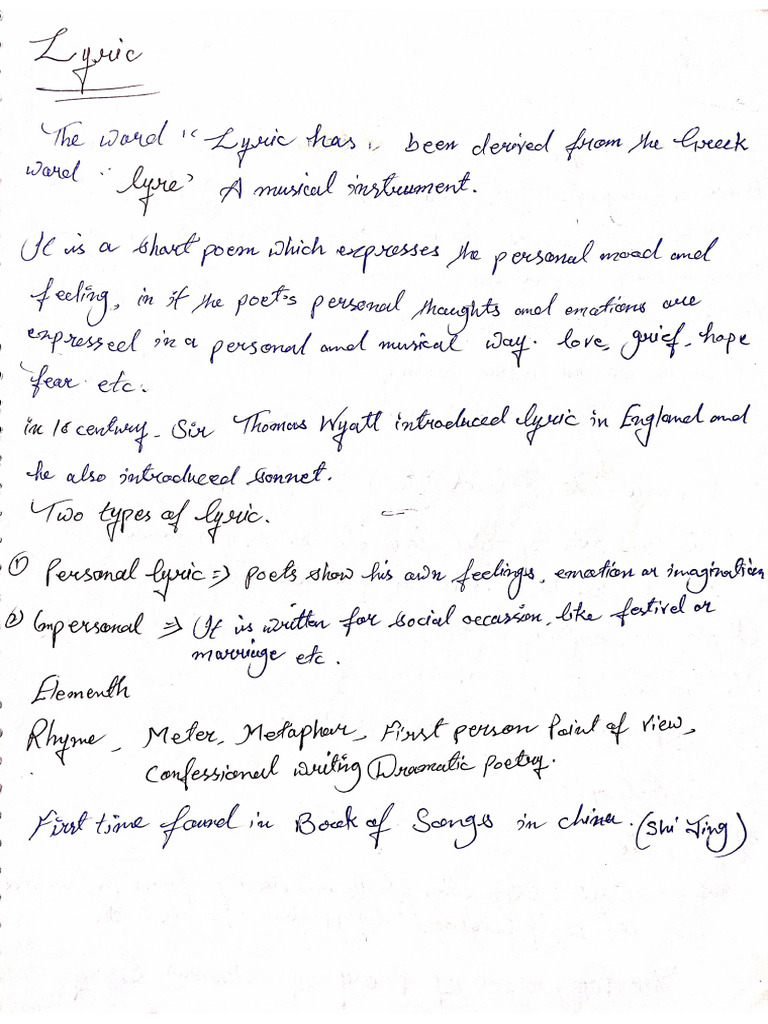 Lyric
The word "Lyric has" been derived from the Greek
word "lyre" A musical instrument.
It is a short poem which expresses the personal mood and
feeling, in it the poet's personal thoughts and emotions are
expressed in a personal and musical way. love, grief, hope
fear etc.
in 16 century. Sir Thomas Wyatt introduced lyric in England and
he also introduced sonnet.
Two types of lyric.
① Personal lyric => poets show his own feelings, emotion or imagination
② Impersonal => It is written for social occassion, like festivel or
marriage etc.
Elementh
Rhyme, Meter, Metaphor, First person Point of view,
Confessional writing Dramatic poetry.
First time found in Book of Songs in china. (Shi Jing)